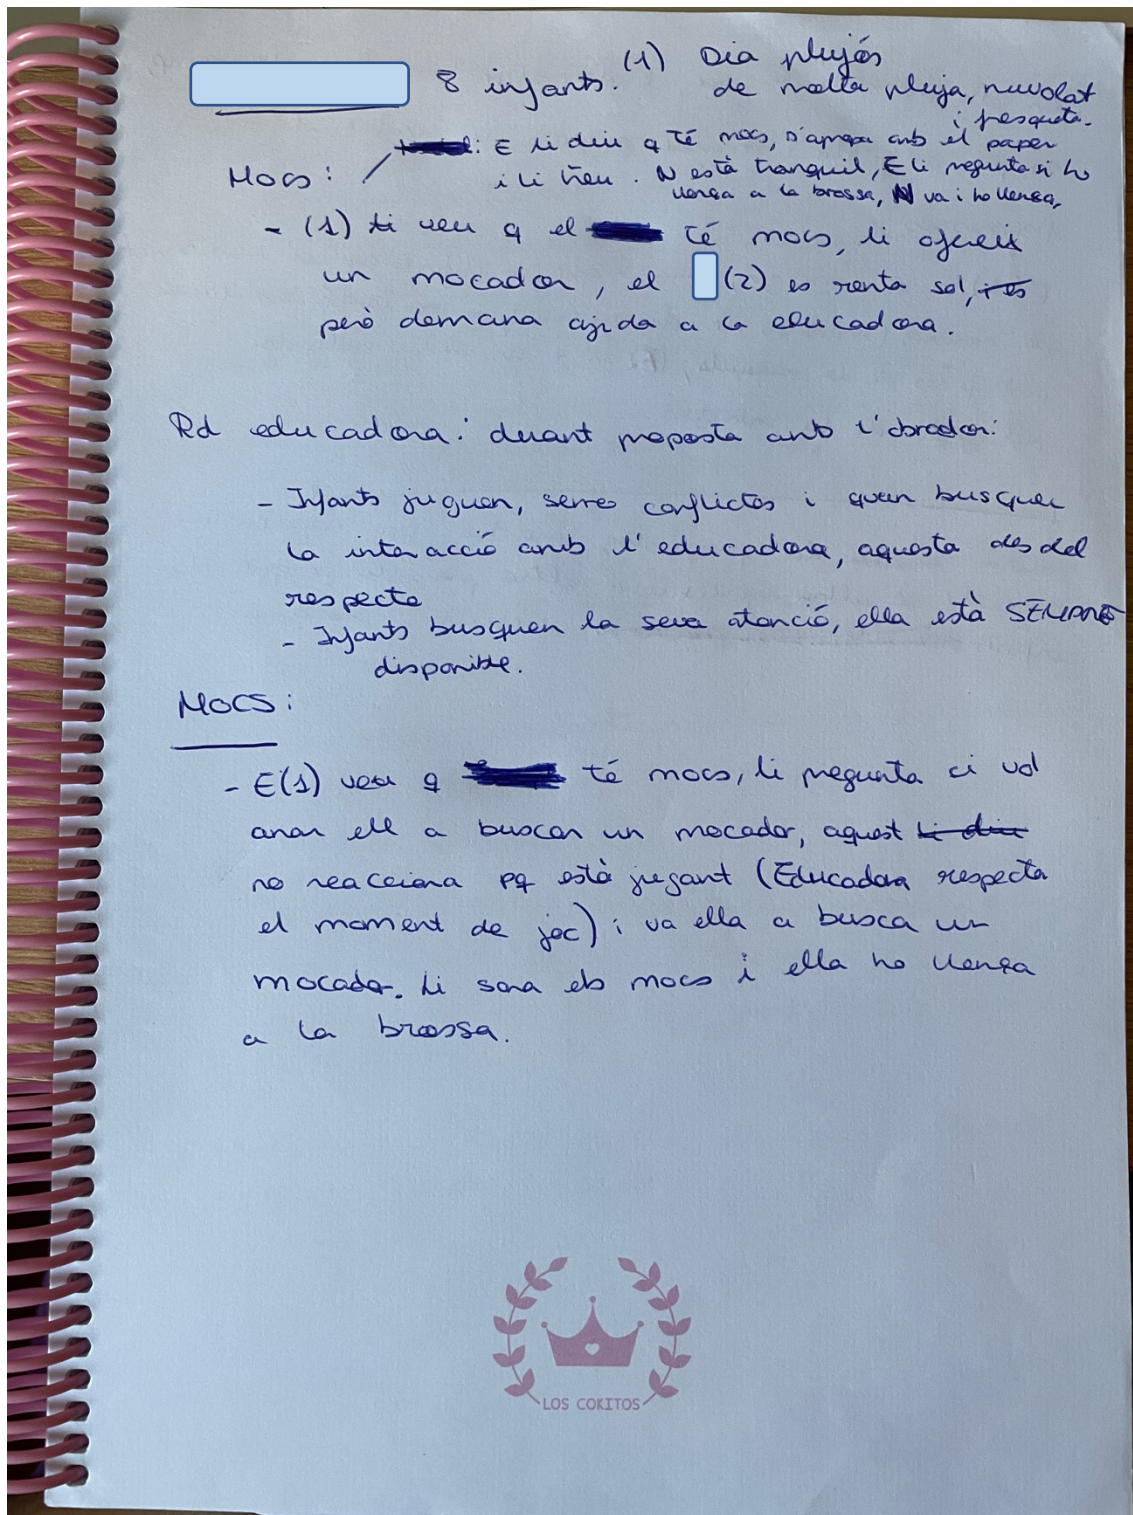 8 infants. (1) Dia plujós
de molta pluja, nuvolat
i fresqueta.
: E li diu q té mocs, s'apropa amb el paper
i li treu. N està tranquil, E li pregunta si ho
llença a la brossa, N va i ho llença,
Mocs:
- (1) veu q el té mocs, li ofereix
un mocador, el (2) es renta sol,
però demana ajuda a la educadora.
Rd educadora: durant proposta amb l'obrador:
- Infants juguen, sense conflictes i quan busquen
la interacció amb l'educadora, aquesta des del
respecte
- Infants busquen la seva atenció, ella està SEMPRE
disponible.
MOCS:
- E(1) veu q té mocs, li pregunta si vol
anar ell a buscar un mocador, aquest
no reacciona pq està jugant (Educadora respecta
el moment de joc) i va ella a busca un
mocador. Li sona els mocs i ella ho llença
a la brossa.
LOS COKITOS